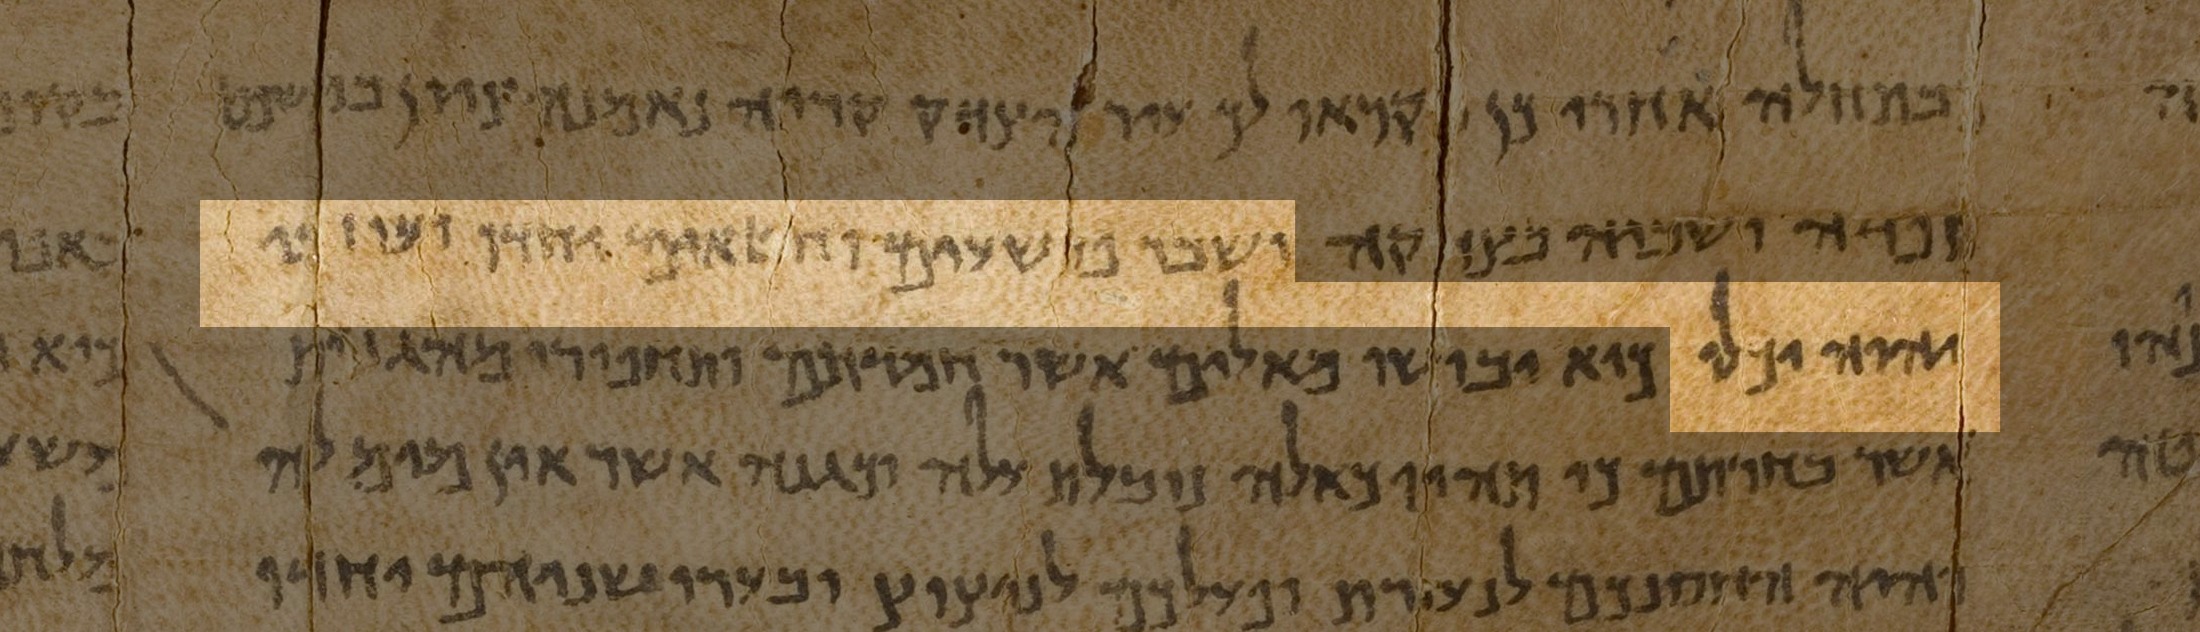 כבתחלה אחרי כן יקראו לך עיר הצדק קריה נאמנה ציון במשפט
תפדה ושביה בצדקה ושבר פושעים וחטאים יחדו ועוזבי
יהוה יכלו כיא יבושו מאלים אשר חמדתם ותחפורו מהגנות
אשר בחרתם כי תהיו כאלה נובלת עלה וכגנה אשר אין מים לה
והיה החסנכם לנעורת ופעלכם לניצוץ ובערו שניהם יחדו